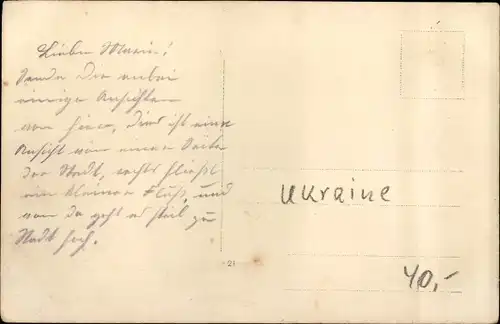 Lieber Maxin!
Sende Dir anbei
einige Ansichten
von hier, dies ist eine
Ansicht von einer Seite
der Stadt, rechts fließt
ein kleiner Fluß, und
von da geht es steil zur
Stadt hoch.
Ukraine
21
40,-